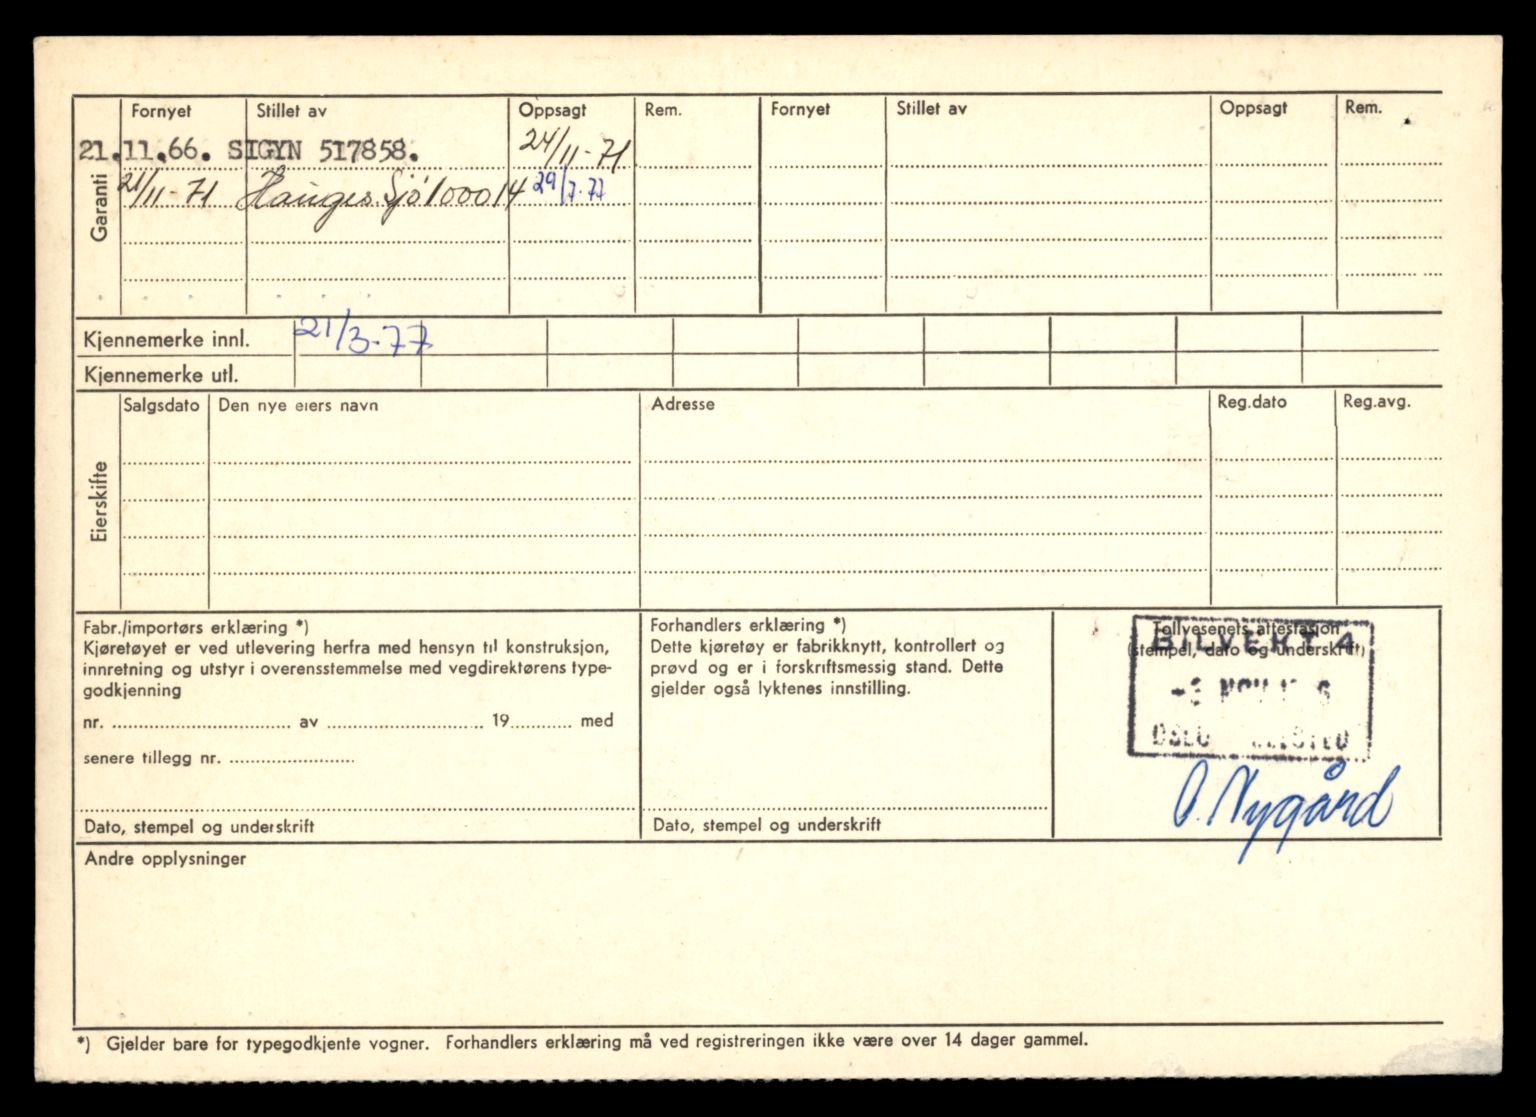 Fornyet Stillet av Oppsagt Rem. Fornyet Stillet av Oppsagt Rem.
21.11.66. SIGYN 517858. 24/11-71
21/11-71 Hauges Sjø 100014 29/7-77
Garanti
Kjennemerke innl. 21/3-77
Kjennemerke utl.
Salgsdato Den nye eiers navn Adresse Reg.dato Reg.avg.
Eierskifte
Fabr./importørs erklæring *)
Kjøretøyet er ved utlevering herfra med hensyn til konstruksjon,
innretning og utstyr i overensstemmelse med vegdirektørens type-
godkjenning
nr. av 19 med
senere tillegg nr.
Dato, stempel og underskrift
Forhandlers erklæring *)
Dette kjøretøy er fabrikknytt, kontrollert og
prøvd og er i forskriftsmessig stand. Dette
gjelder også lyktenes innstilling.
Dato, stempel og underskrift
Tollvesenets attestasjon
(stempel, dato og underskrift)
BILVEKT 4
NOV
OSLO
O. Nygård
Andre opplysninger
*) Gjelder bare for typegodkjente vogner. Forhandlers erklæring må ved registreringen ikke være over 14 dager gammel.